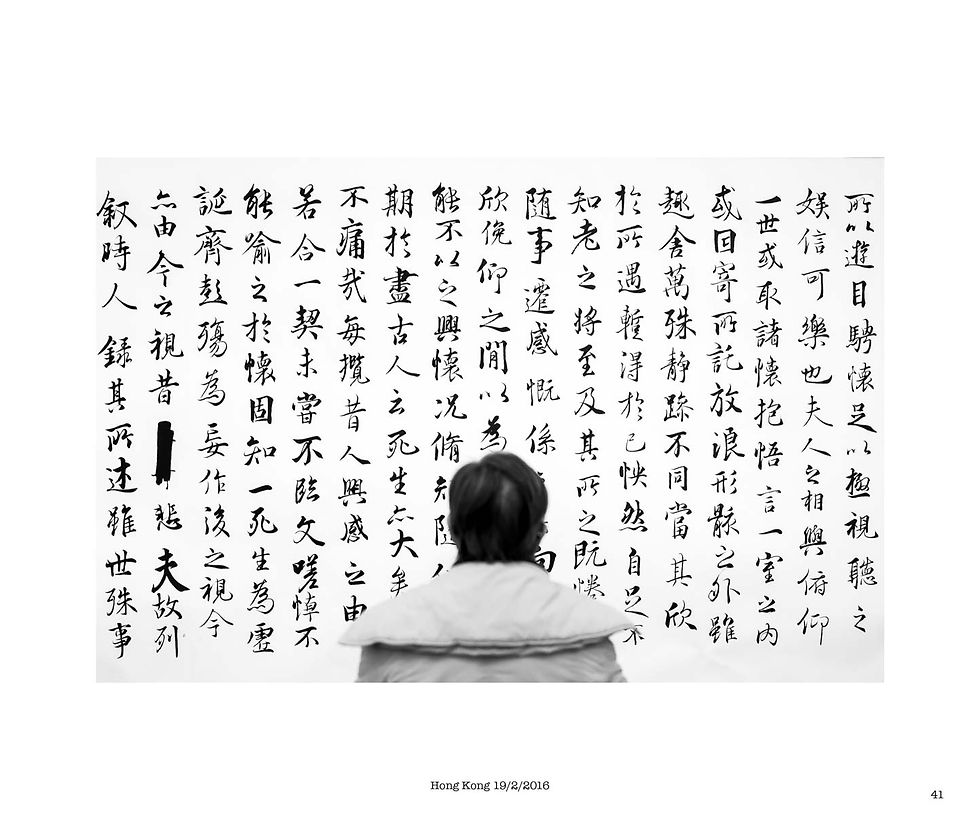 所以遊目騁懷足以極視聽之
娛信可樂也夫人之相與俯仰
一世或取諸懷抱悟言一室之內
或因寄所託放浪形骸之外雖
趣舍萬殊静躁不同當其欣
於所遇蹔得於己怏然自足不
知老之將至及其所之既惓
隨事遷感慨係向
欣俛仰之閒以為
能不以之興懷况脩
期於盡古人云死生亦大矣
不痛哉每攬昔人興感之由
若合一契未嘗不臨文嗟悼不
能喻之於懷固知一死生為虛
誕齊彭殤為妄作後之視今
亦由今之視昔悲夫故列
叙時人錄其所述雖世殊事
Hong Kong 19/2/2016
41